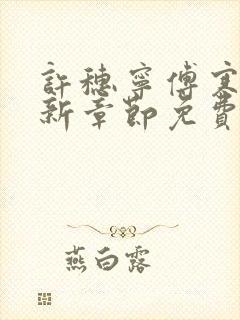 許穗寧傅寒
新章節免費
燕白露